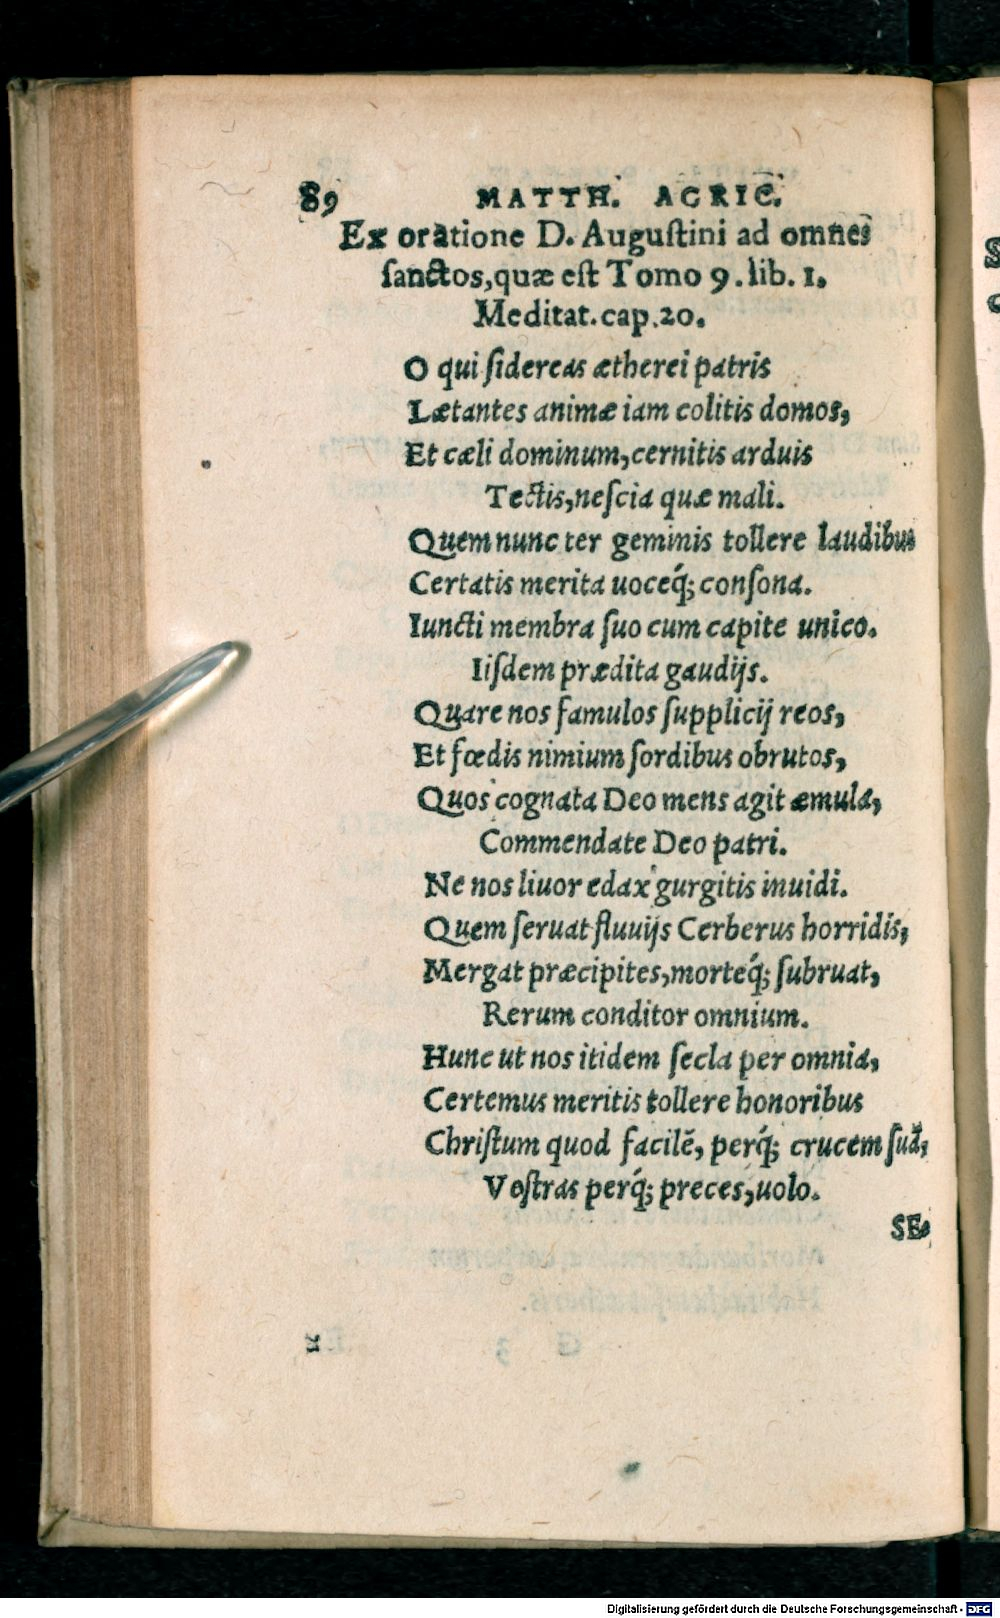 89 MATTH. AGRIC.
Ex oratione D. Augustini ad omnes
ſanctos, quæ eſt Tomo 9. lib. 1.
Meditat. cap. 20.
O qui ſidereas ætherei patris
Lætantes animæ iam colitis domos,
Et cæli dominum, cernitis arduis
Tectis, neſcia quæ mali.
Quem nunc ter geminis tollere laudibus
Certatis merita uoceq́; conſona.
Iuncti membra ſuo cum capite unico.
Iiſdem prædita gaudijs.
Quare nos famulos ſupplicij reos,
Et fœdis nimium ſordibus obrutos,
Quos cognata Deo mens agit æmula,
Commendate Deo patri.
Ne nos liuor edax gurgitis inuidi.
Quem ſeruat fluuijs Cerberus horridis,
Mergat præcipites, morteq́; ſubruat,
Rerum conditor omnium.
Hunc ut nos itidem ſecla per omnia,
Certemus meritis tollere honoribus
Chriſtum quod facilē, perq́; crucem ſuā,
Voſtras perq́; preces, uolo.
SE-
Digitalisierung gefördert durch die Deutsche Forschungsgemeinschaft - DFG